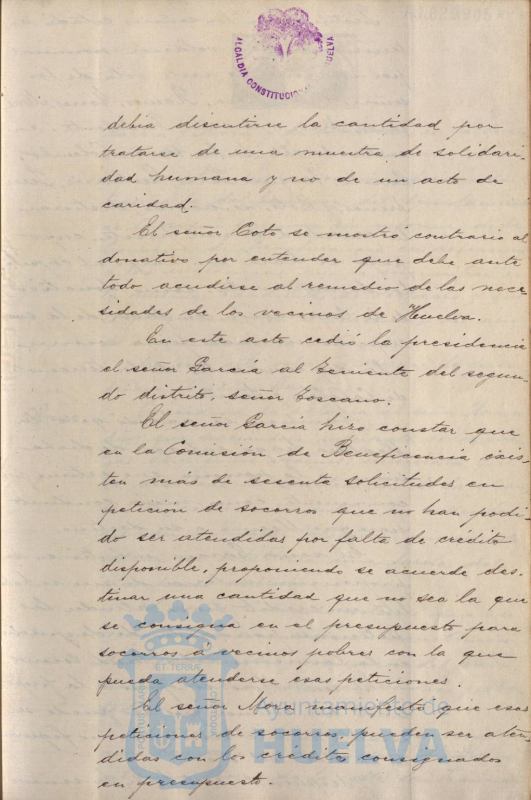 ALCALDIA CONSTITUCIO HUELVA
debia discutirse la cantidad por
tratarse de una muestra de solidari
dad humana y no de un acto de
caridad.
El señor Coto se mostró contrario al
donativo por entender que debe ante
todo acudirse al remedio de las nece
sidades de los vecinos de Huelva.
En este acto cedió la presidencia
el señor García al Teniente del segun
do distrito, señor Toscano.
El señor García hizo constar que
en la Comisión de Beneficencia exis
ten más de sesenta solicitudes en
petición de socorros que no han podi
do ser atendidas por falta de crédito
disponible, proponiendo se acuerde des
tinar una cantidad que no sea la que
se consigna en el presupuesto para
socorros á vecinos pobres con la que
pueda atenderse esas peticiones.
El señor Mora manifestó que esas
peticiones de socorros, pueden ser aten
didas con los créditos consignados
en presupuesto.
ET TERRA
Ayuntamiento de
HUELVA